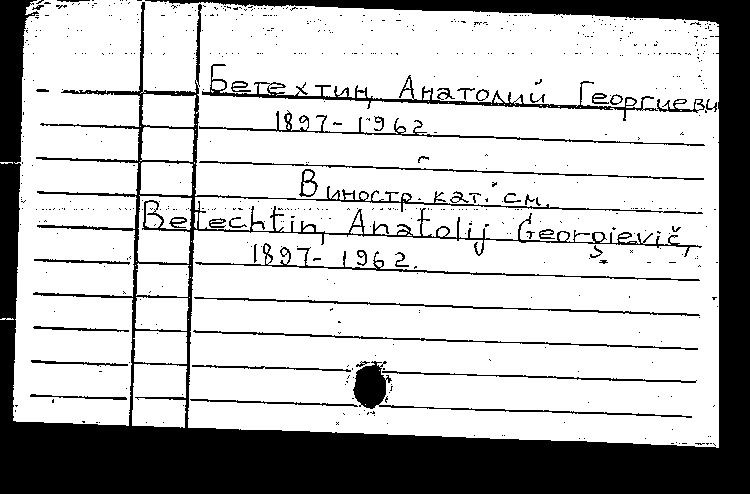 Бетехтин, Анатолий Георгиеви
1897-1962.
В иностр. кат. см.
Betechtin, Anatolij Georgievič,
1897-1962.